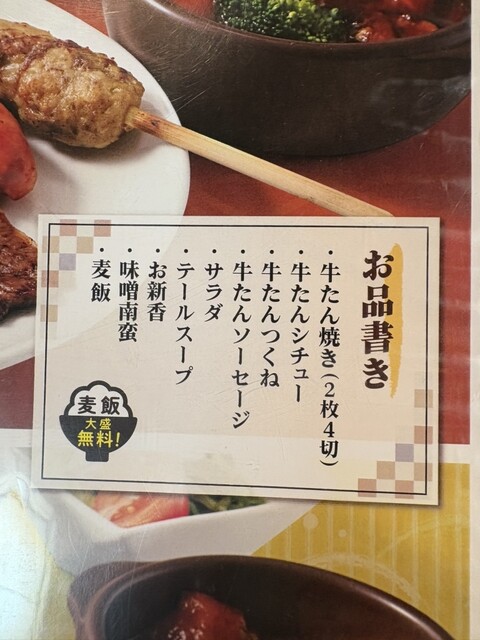 お品書き
・牛たん焼き(2枚4切)
・牛たんシチュー
・牛たんつくね
・牛たんソーセージ
・サラダ
・テールスープ
・お新香
・味噌南蛮
・麦飯
麦飯
大盛
無料!